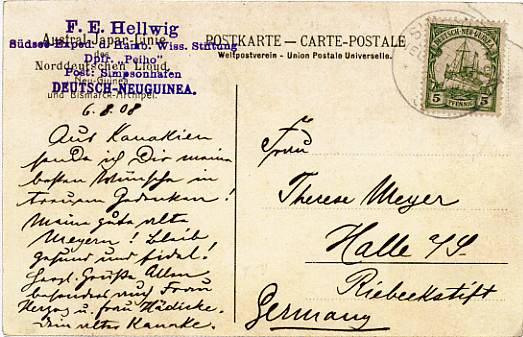 F. E. Hellwig
Südsee-Exped. d. Hamb. Wiss. Stiftung
Dpfr. „Peiho"
Post: Simpsonhafen
DEUTSCH-NEUGUINEA.
Austral-Japan-Linie
des
Norddeutschen Lloyd.
Neu-Guinea
und Bismarck-Archipel.
6.8.08
Aus Kanakien
sende ich Dir meine
besten Wünsche in
treuem Gedenken!
Meine gute alte
Meyern! Bleib
gesund und fidel!
Herzl. Grüße Allen
besonders auch Frau
Herzog u. Frau Hädicke.
Dein alter Kanake.
POSTKARTE – CARTE-POSTALE
Weltpostverein - Union Postale Universelle.
DEUTSCH-NEU-GUINEA
5 PFENNIG 5
Frau
Therese Meyer
Halle a/S.
Riebeckstift
Germany